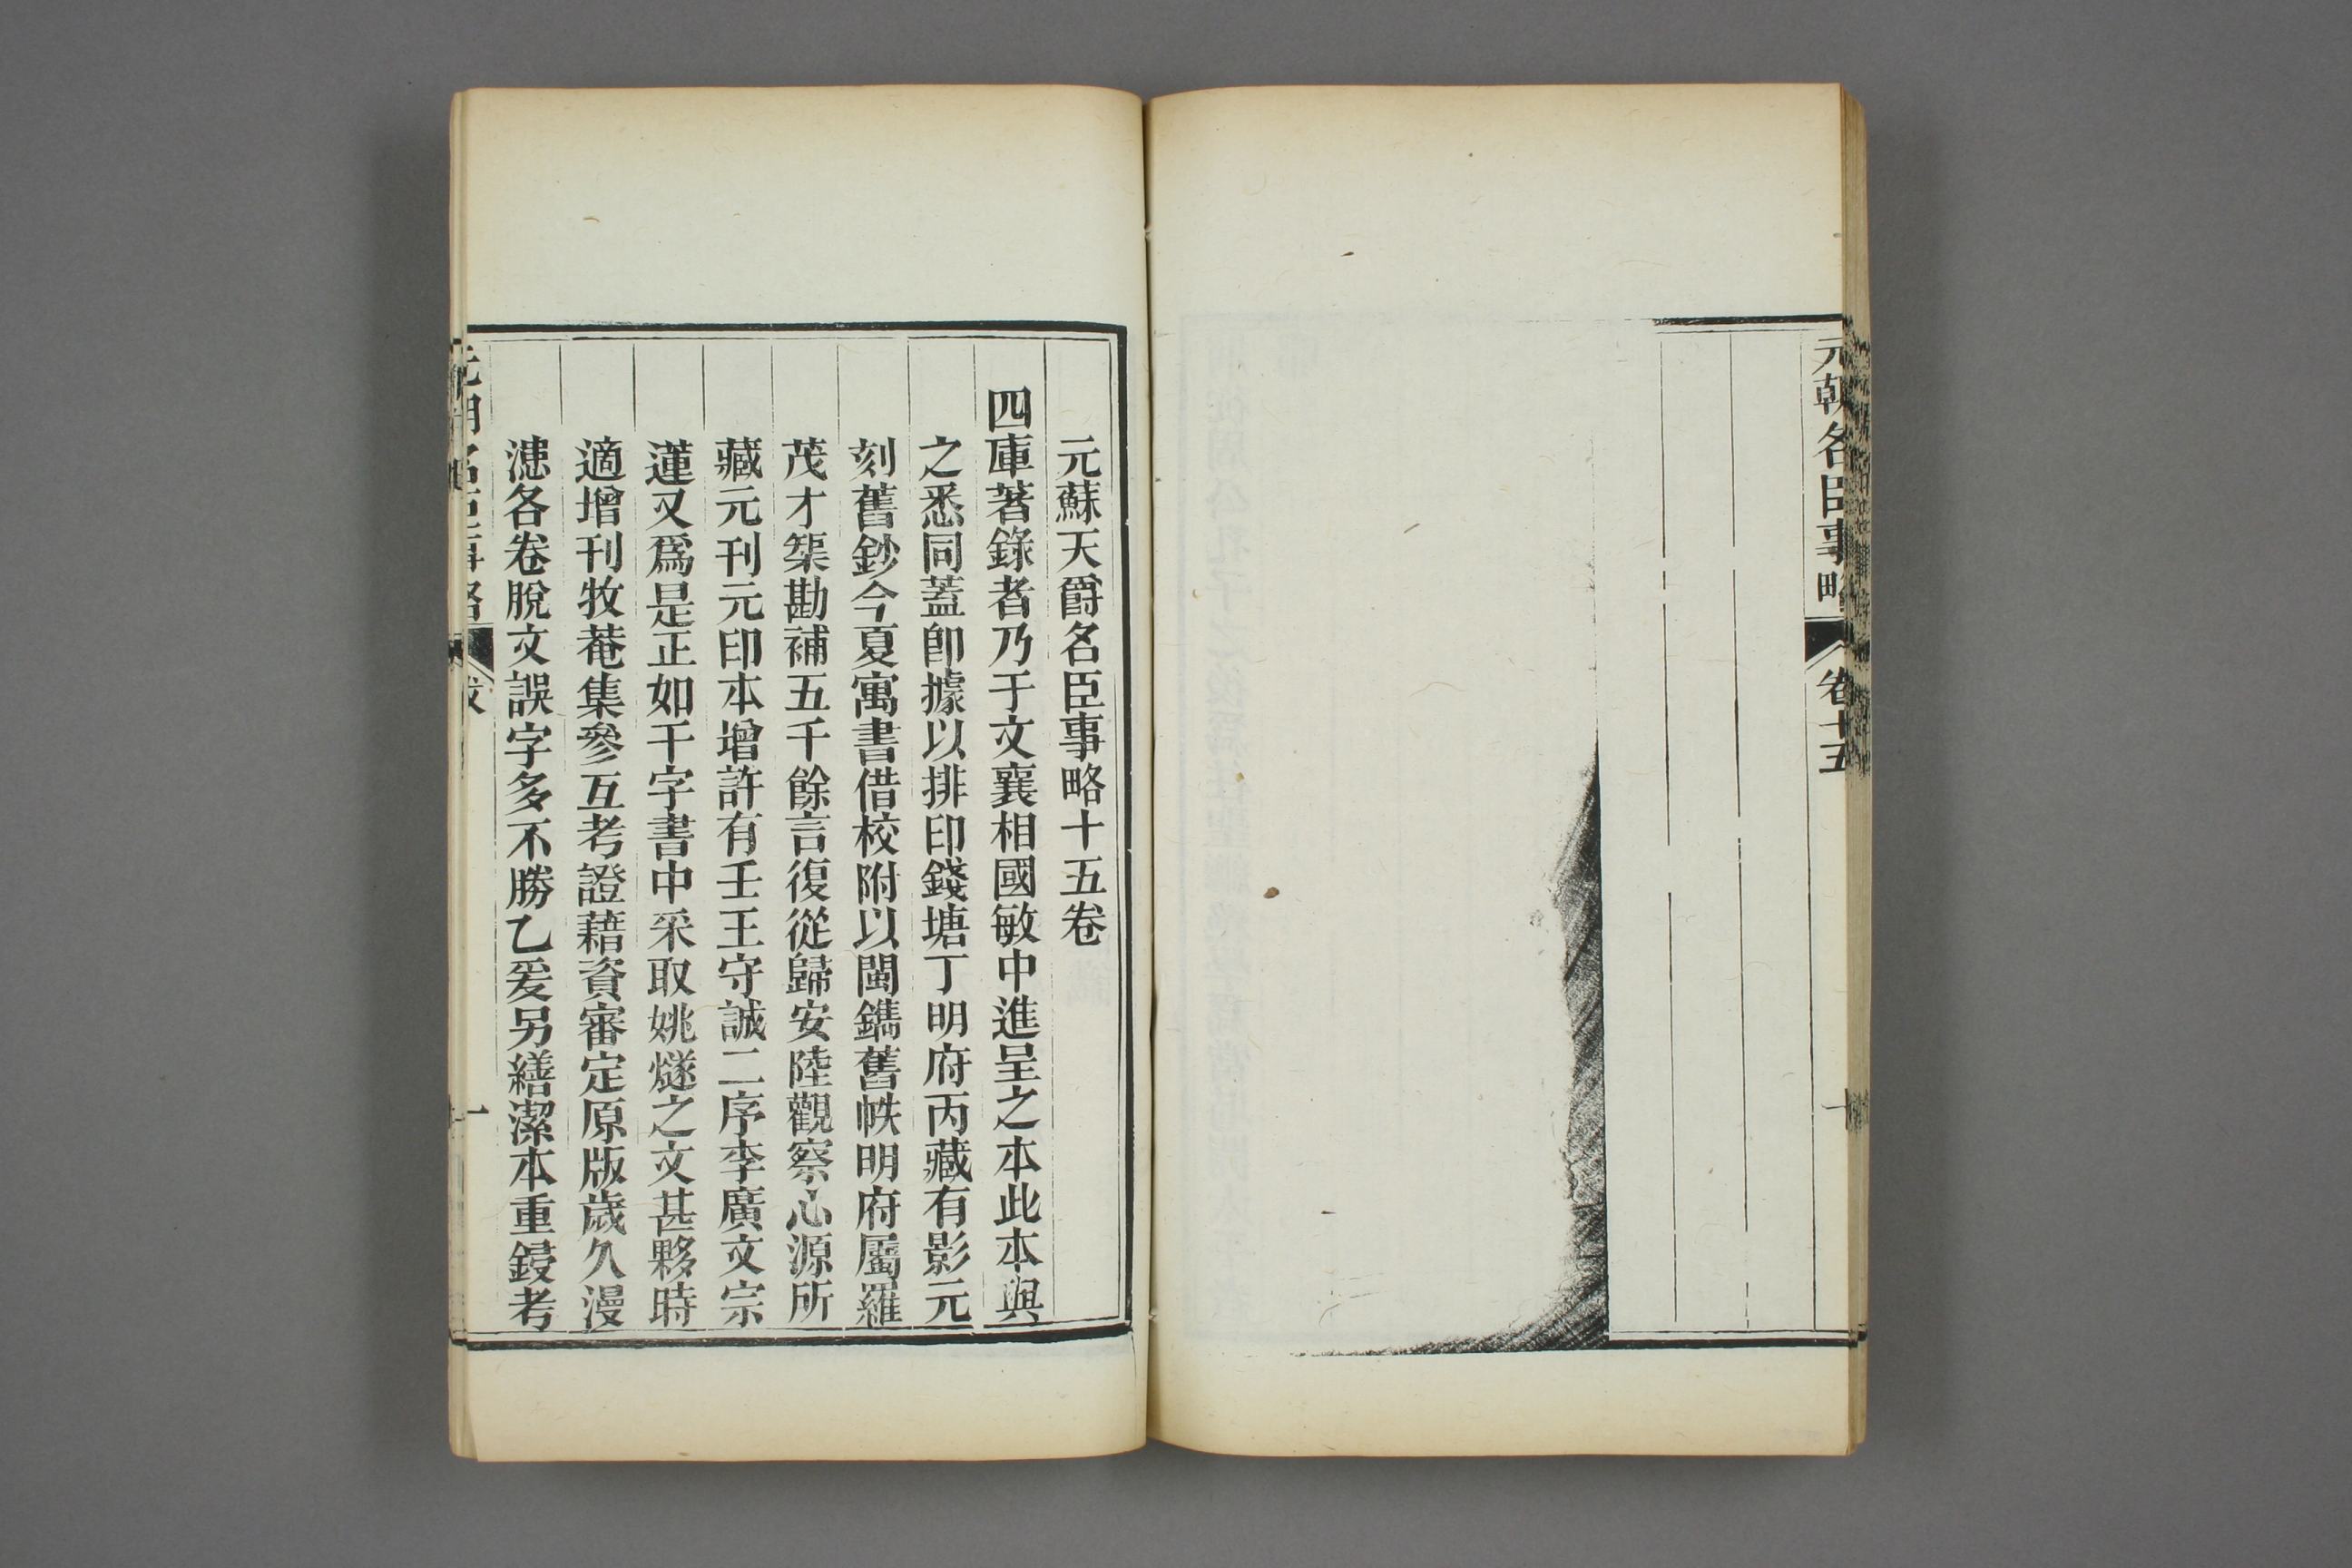 元朝名臣事略 卷十五
元蘇天爵名臣事略十五卷
四庫著錄者乃于文襄相國敏中進呈之本此本與
之悉同蓋卽據以排印錢塘丁明府丙藏有影元
刻舊鈔今夏寓書借校附以閩鐫舊帙明府屬羅
茂才榘勘補五千餘言復從歸安陸觀察心源所
藏元刊元印本增許有壬王守誠二序李廣文宗
蓮又爲是正如干字書中采取姚燧之文甚夥時
適增刊牧菴集參互考證藉資審定原版歲久漫
漶各卷脫文誤字多不勝乙爰另繕潔本重鋟考
元朝名臣事略 跋 一